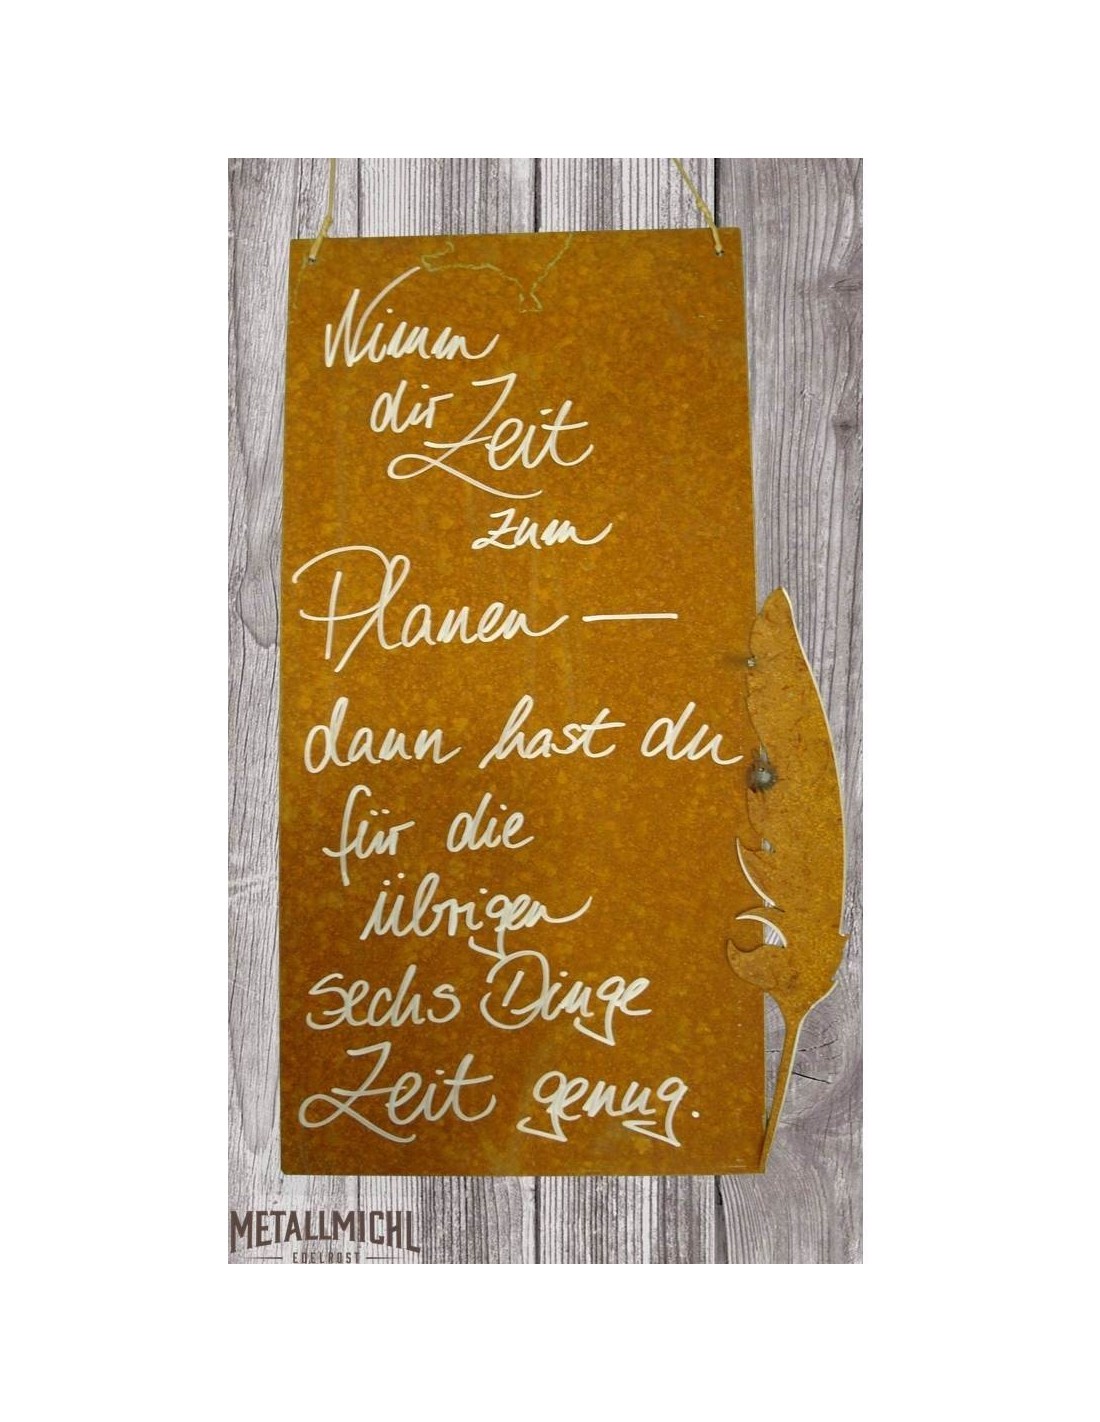 Nimm
dir Zeit
zum
Planen —
dann hast du
für die
übrigen
sechs Dinge
Zeit genug.
METALLMICHL
EDELROST